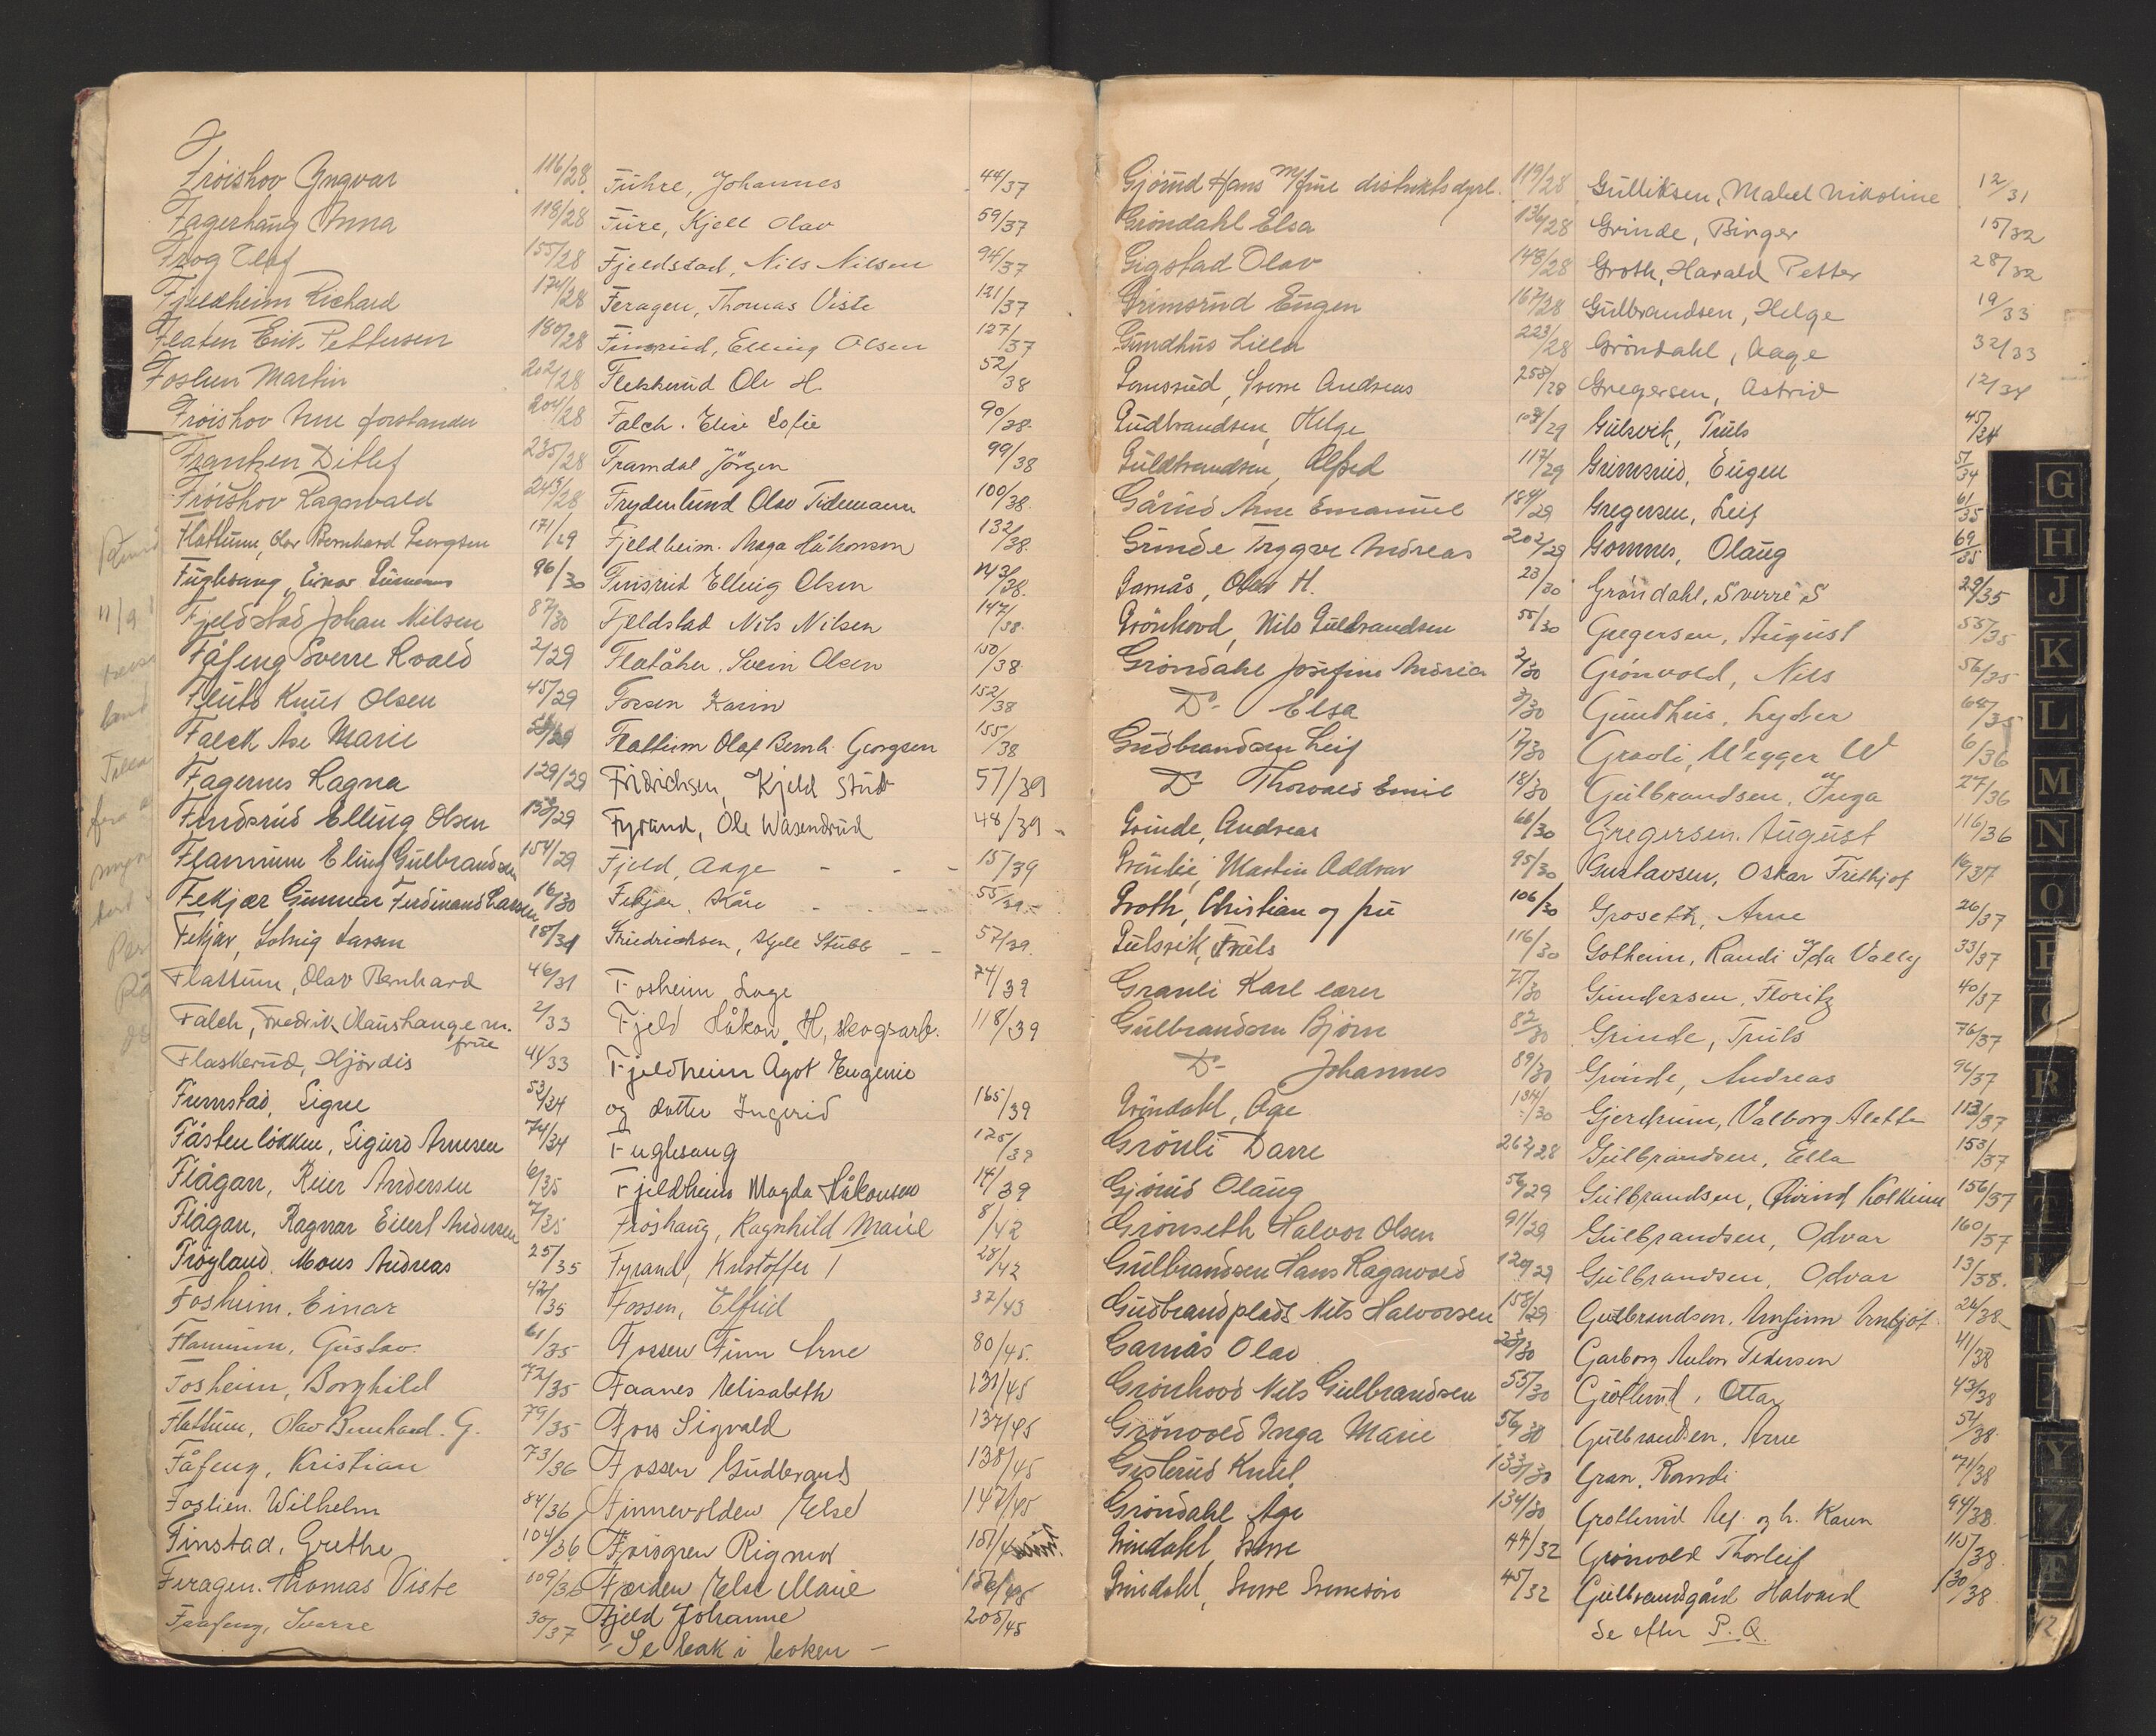 F
Frøishov Yngvar 116/28
Fagerhaug Anna 118/28
Frog Olaf 155/28
Fjeldheim Richard 174/28
Flaten Erik Pettersen 180/28
Foslien Martin 202/28
Frøishov Arne forstander 204/28
Frantzen Ditlef 235/28
Frøishov Ragnvald 243/28
Flattum, Olav Bernhard Georgsen 171/29
Fuglesang, Einar 96/30
Fjeldstad Johan Nilsen 87/30
Fåfeng Sverre Roald 2/29
Knut Olsen 45/29
Falck Åse Marie
Fagernes Magna 129/29
Findsrud Elling Olsen 153/29
Flammum Eling Gulbrandsen 154/29
Fekjær Gunnar Ferdinand Larsen 16/30
Fekjær, Solveig Larsen 18/31
Flattum, Olav Bernhard 46/31
Falch, Fredrik Olaus Hauge m. frue 2/33
Flaskerud, Hjørdis 41/33
Furnstad, Signe 53/34
Fåstenløkken, Sigurd Arnesen 74/34
Flågan, Reier Andersen 6/35
Flågan, Ragnar Eilert Andersen 7/35
Frøyland, Mons Andreas 25/35
Fosheim, Einar 42/35
Flammum, Gustav. 61/35
Fosheim, Borghild 72/35
Flattum, Olav Bernhard. G. 79/35
Fåfeng, Kristian 73/36
Foslien. Wilhelm 84/36
Finstad, Grethe 104/36
Feragen. Thomas Viste 109/36
Faafeng, Sverre 30/37
Fuhre, Johannes 44/37
Fure, Kjell Olav 59/37
Fjeldstad, Nils Nilsen 94/37
Feragen, Thomas Viste 121/37
Finsrud, Elling Olsen 127/37
Fleskerud Ole H. 52/38
Falch. Elise Sofie 90/38
Framdal Jørgen 99/38
Frydenlund Olav Tidemann 100/38
Fjeldheim. Maga Håkonson 132/38.
Finsrud Elling Olsen 143/38.
Fjeldstad Nils Nilsen 147/38.
Flatåker. Svein Olsen 150/38
Forsen Karin 152/38
Flattum Olaf Bernh. Georgsen 155/38
Fridrichsen, Kjeld Stub 57/39
Fyrand, Ole Wasendrud 48/39 -
Fjeld, Aage - - - 15/39
Fekjær, Kåre - - - 55/39
Friedrichsen, Kjell Stubb - - 57/39
Fosheim Lage 74/39
Fjeld Håkon H, skogsarb. 118/39
Fjeldheim Agot Eugenie
og datter Ingerid 165/39
Fuglesang 125/39
Fjeldheim Magda Håkonsen 14/39
Frøshaug, Ragnhild Marie 8/42
Fyrand, Kristoffer T 28/42
Fossen, Elfrid 37/43
Fossen Finn Arne 80/45.
Faanes Elisabeth 131/45
Foss Sigvald 137/45
Fossen Gudbrand 138/45
Finnevolden Else 147/45
Frisgren Rigmor
Færden Else Marie
Fjeld Johanne 205/45
- Se bak i boken -
Gjørud Hans m/frue distriktsdyrl. 119/28
Grøndahl Elsa 136/28
Gigstad Olav 148/28
Grimsrud Eugen 167/28
Gundhus Lilla 223/28
Gomsrud, Sverre Andreas 258/28
Gudbrandsen, Helge 108/29
Guldbrandsen, Alfred 117/29
Gårud Arne Emanuel 184/29
Grinde Trygve Andreas 202/29
Garnås, Olav H. 23/30
Grønhovd, Nils Guldbrandsen 55/30
Grøndahl Josefine Andrea 2/30
Do Elsa 3/30
Gudbrandsen Leif 17/30
Do Thorvald Emil 18/30
Grinde, Andreas 66/30
Grønlie, Martin Oddvar 95/30
Groth, Christian og frue 106/30
Gulsvik, Truls 116/30
Granli Karl lærer 75/30
Gulbrandsen Bjørn 82/30
Do Johannes 89/30
Grøndahl, Åge 134/30
Grønli Darre 262/28
Gjørud Olaug 56/29
Grønseth Halvor Olsen 91/29
Gulbrandsen Hans Ragnvald 120/29
Gudbrandplads Nils Halvorsen 158/29
Garnås Olav 23/30
Grønhovd Nils Gulbrandsen 55/30
Grønvold Inga Marie 56/30
Gislerud Knut 133/30
Grøndahl Åge 134/30
Grøndahl, Sverre 44/32
Grøndahl, Sverre 45/32
Gulliksen, Mabel Nikoline 12/31
Grinde, Birger 15/32
Groth, Harald Petter 28/32
Gulbrandsen, Helge 19/33
Grøndahl, Aage 32/33
Gregersen, Astrid 12/34
Gulsvik, Truls 45/34
Grimsrud, Eugen 51/34
Gregersen, Leif 61/35
Gomnes, Olaug 69/35
Grøndahl, Sverre S 29/35
Gregersen, August 55/35
Grønvold, Nils 56/35
Gundhus, Lyder 64/35
Gravli, Megger W 6/36
Gulbrandsen, Inga 27/36
Gregersen. August 116/36
Gustavsen, Oskar Fritjof 16/37
Groseth, Arne 26/37
Gotheim, Randi Ida Vally 33/37
Gundersen, Floritz 40/37
Grinde, Truls 76/37
Grinde, Andreas 96/37
Gjerdrum, Valborg Aletta 113/37
Gulbrandsen, Ella 153/37
Gulbrandsen, Øivind Kolbein 156/37
Gulbrandsen, Odvar 160/37
Gulbrandsen, Odvar 13/38.
Gulbrandsen, Arnfinn Arnljot. 24/38
Garborg Anton Pedersen 41/38
Grøtlund, Ottar 43/38
Gulbrandsen, Arne 54/38
Gran, Randi 71/38
Grøtlund Alf og h. Karen 94/38
Grønvold Thorleif 115/38.
Gulbrandgård Halvard 130/38
Se efter P. Q.
G
H
J
K
L
M
N
O
P
R
T
Y
Z
Æ